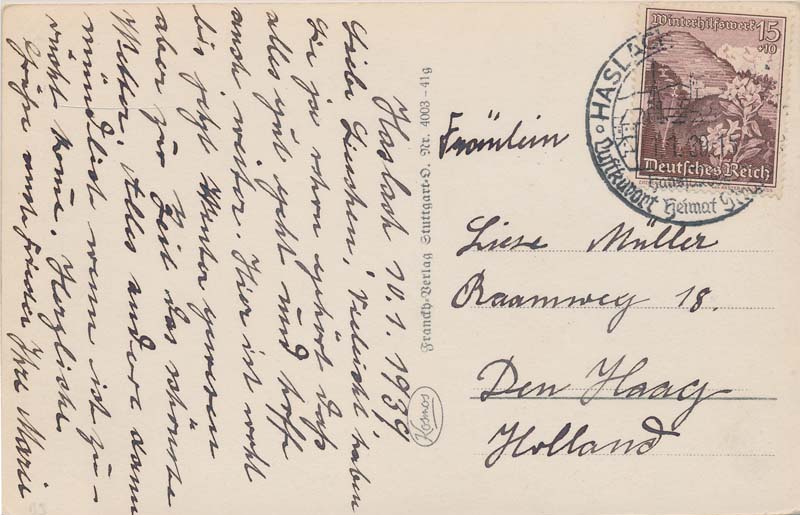 Haslach 10.1.1939
Liebe Lieschen, Vieleicht haben
Sie ja schon gehört daß
alles gut geht und hoffe
auch weiter. Hier ist wohl
bis jetzt Winter gewesen
aber zur Zeit das schönste
Wetter. Alles andere dann
mündlich wenn ich zu-
rückt kome. Herzliche
Grüße auch Frieda Ihre Marie
Franckh-Verlag Stuttgart-O. Nr. 4003-41g
Kosmos
Fräulein
Liese Müller
Raamweg 18.
Den Haag
Holland
Winterhilfswerk 15
+10
Deutsches Reich
HASLACH
Luftkurort
Heimat